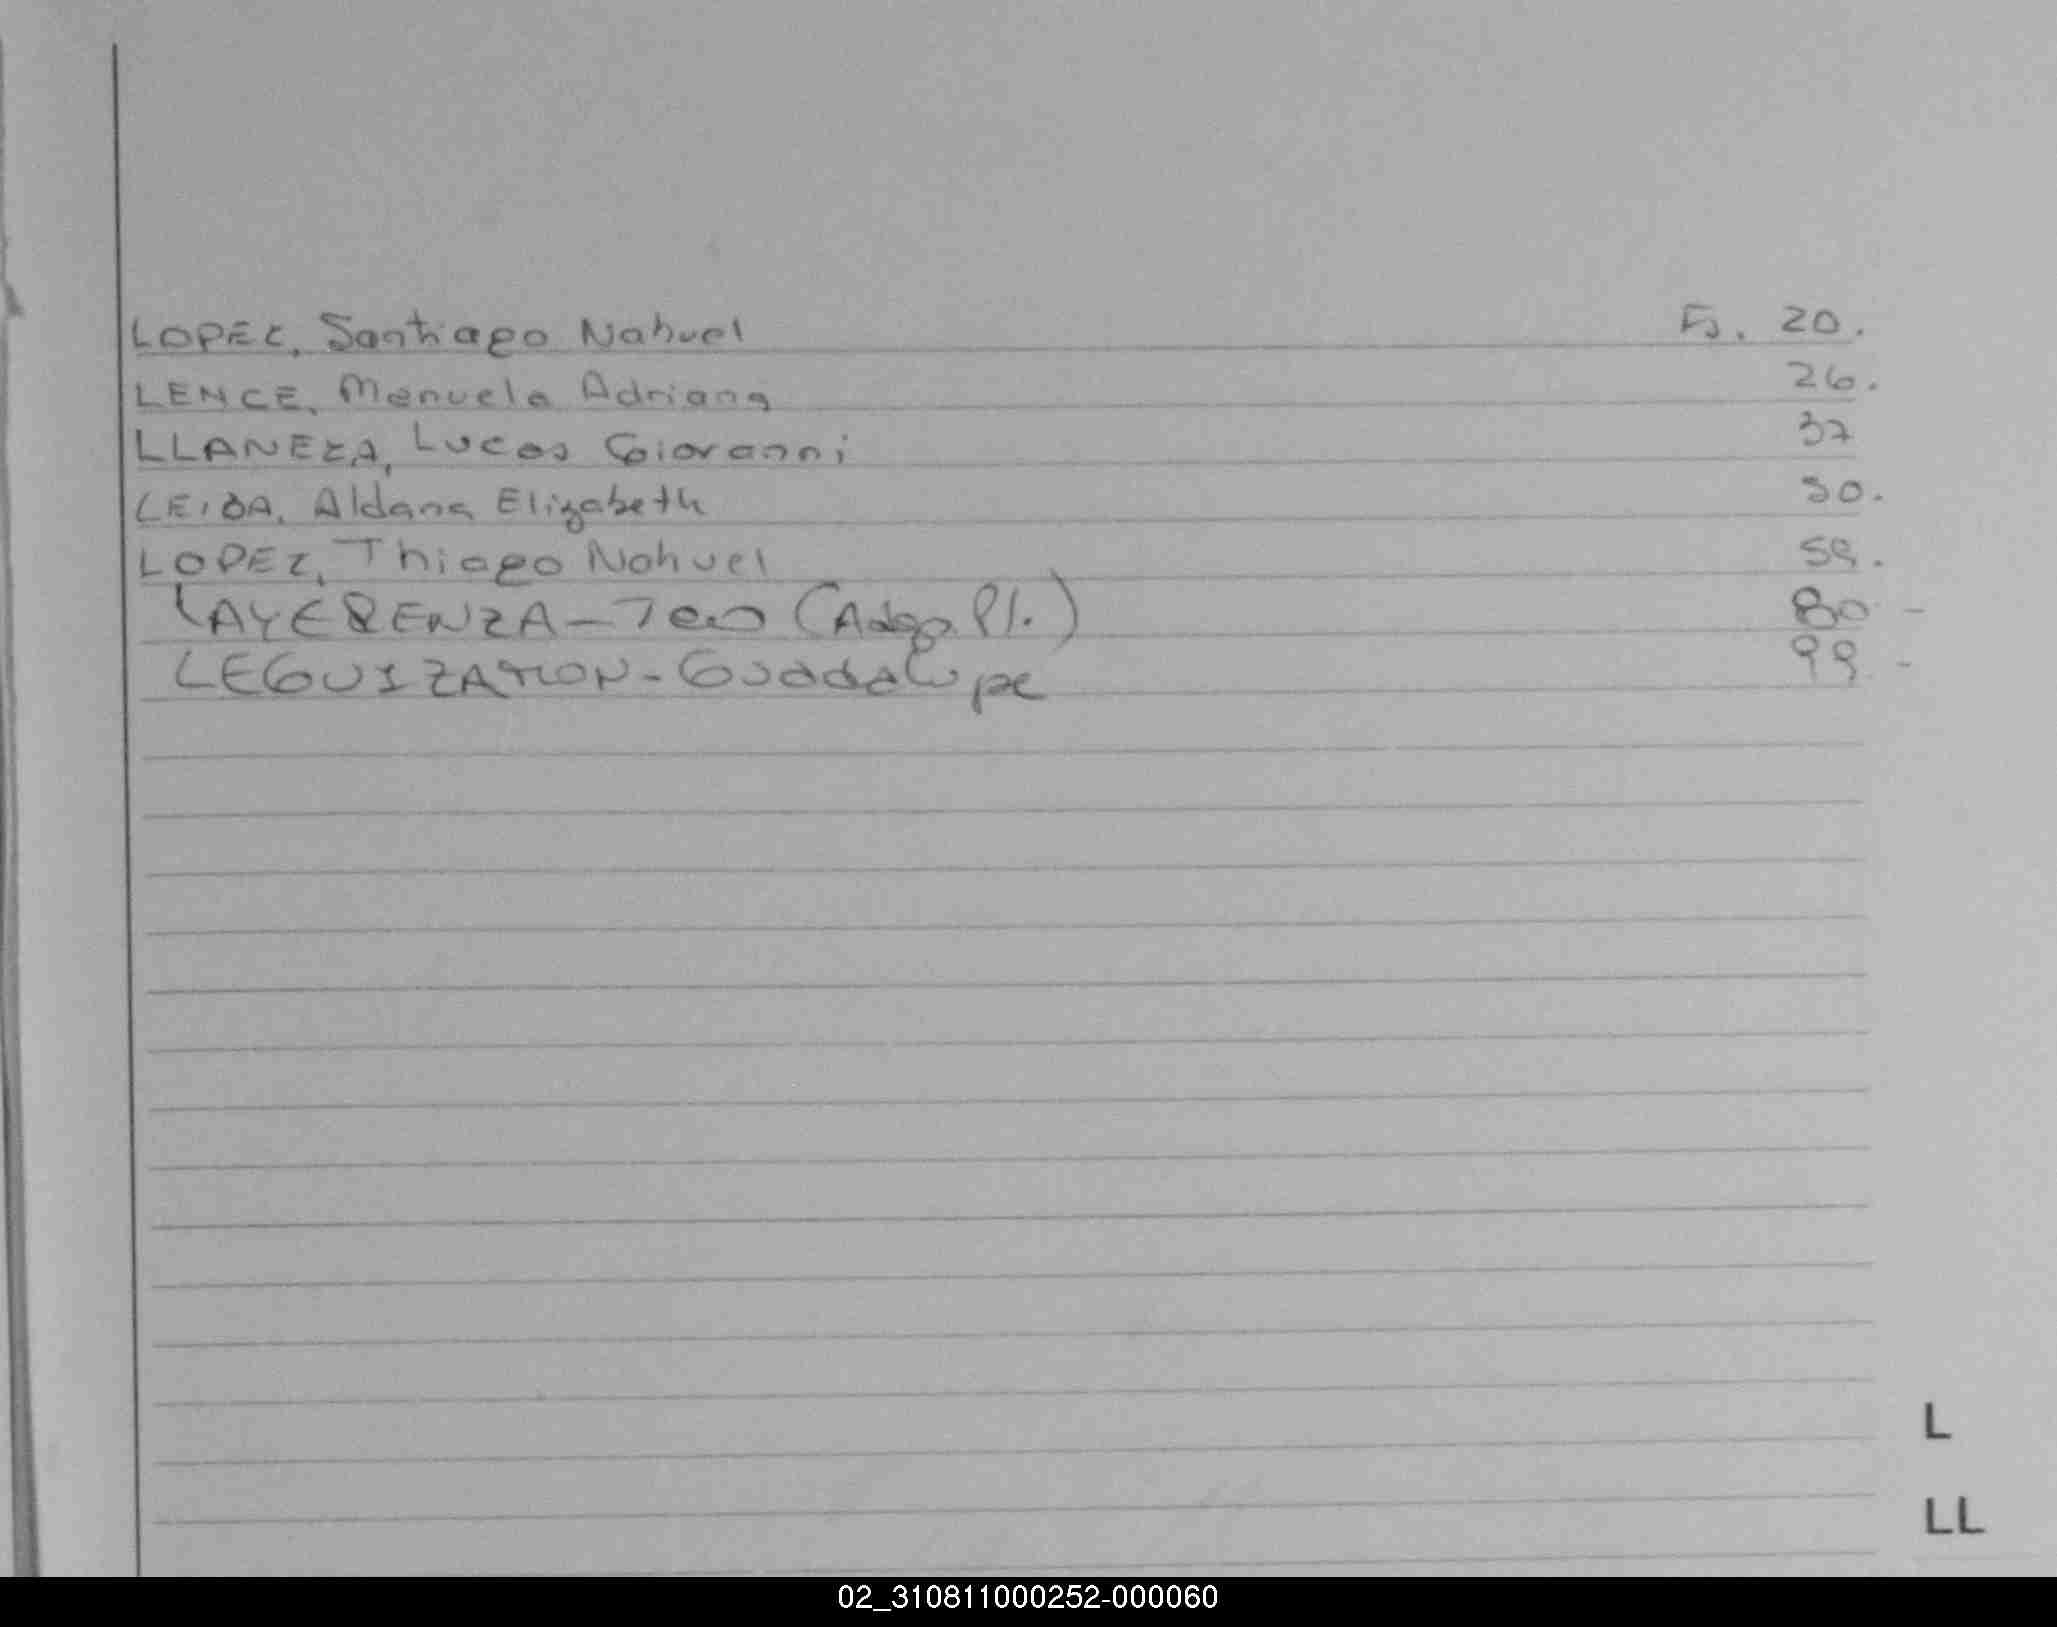 LOPEZ, Santiago Nahuel Fs. 20.
LENCE, Manuela Adriana 26.
LLANEZA, Lucas Giovanni 37
LEIDA, Aldana Elizabeth 50.
LOPEZ, Thiago Nahuel 59.
LAYERENZA - Teo (Adop. Pl.) 80 -
LEGUIZAMON - Guadalupe 99 -
L
LL
02_310811000252-000060